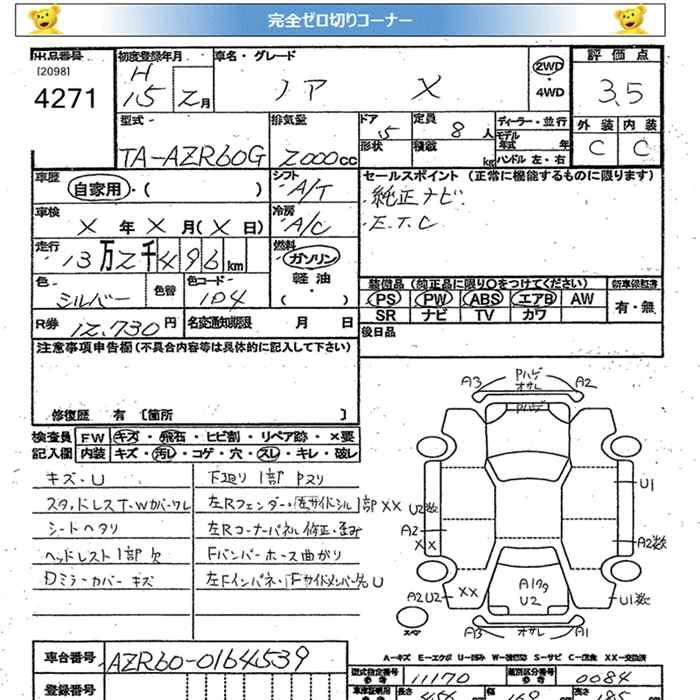 完全ゼロ切りコーナー
出品番号
[2098]
4271
初度登録年月
H 15 2月
車名・グレード
ノア X
2WD
・
4WD
評価点
3.5
型式
TA-AZR60G
排気量
2000cc
ドア
5
定員
8人
形状
積載
kg
ディーラー・並行
モデル年式 年
ハンドル 左・右
外装 内装
C C
車歴
自家用・( )
シフト
A/T
セールスポイント (正常に機能するものに限ります)
・純正ナビ
・E.T.C
車検
X 年 X 月(X 日)
冷房
A/C
走行
13万2千496km
燃料
ガソリン
軽油
( ・ )
色
シルバー
色替
色コード
1D4
装備品(純正品に限り○をつけてください)
新車保証書
PS PW ABS エアB AW
有・無
SR ナビ TV カワ
R券
12,730円
名変通知期限 月 日
後日品
注意事項申告欄(不具合内容等は具体的に記入して下さい)
修復歴 有 [箇所 ]
検査員
記入欄
FW キズ・飛石・ヒビ割・リペア跡・×要
内装 キズ・汚レ・コゲ・穴・スレ・キレ・破レ
キズ・U
スタッドレスT・Wカバーワレ
シートヘタリ
ヘッドレスト1部欠
Dミラーカバー キズ
下廻り 1部 Pヌリ
左Rフェンダー・左サイドシル1部XX
左Rコーナーパネル修正・歪み
Fバンパーホース曲がり
左Fインパネ・
A3
Pハゲ
オサレ
A2
Pハゲ
U1
U2数
A2
XX
A2数
A2U2
XX
A1
U2
U1数
スペア
A3
オサレ
A1
A-キズ E-エクボ U-凹み W-補修跡 S-サビ C-腐食 XX-交換済
車台番号
AZR60-0164539
型式指定番号
参考
11170
類別区分番号
参考
0084
登録番号
長さ
幅
高さ